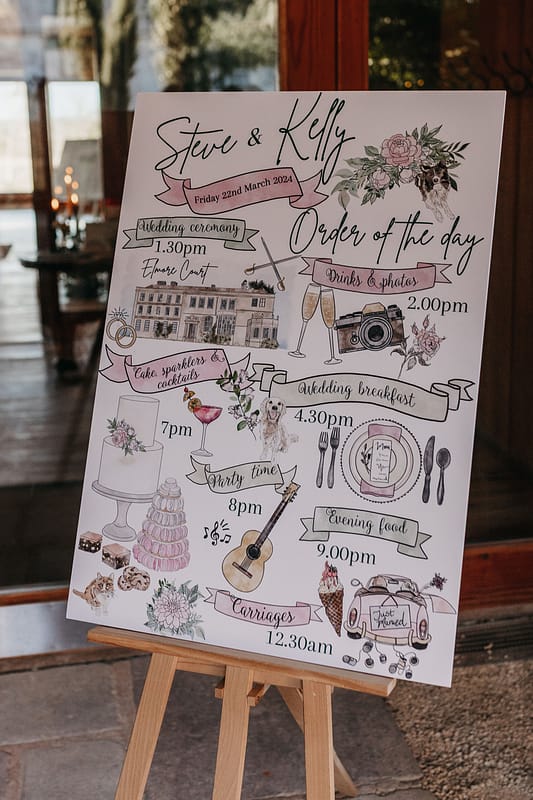 Steve & Kelly
Friday 22nd March 2024
Order of the day
Wedding ceremony
1.30pm
Elmore Court
Drinks & photos
2.00pm
Wedding breakfast
4.30pm
Menu
Cake, sparklers &
cocktails
7pm
Party time
8pm
Evening food
9.00pm
Carriages
12.30am
Just
Married